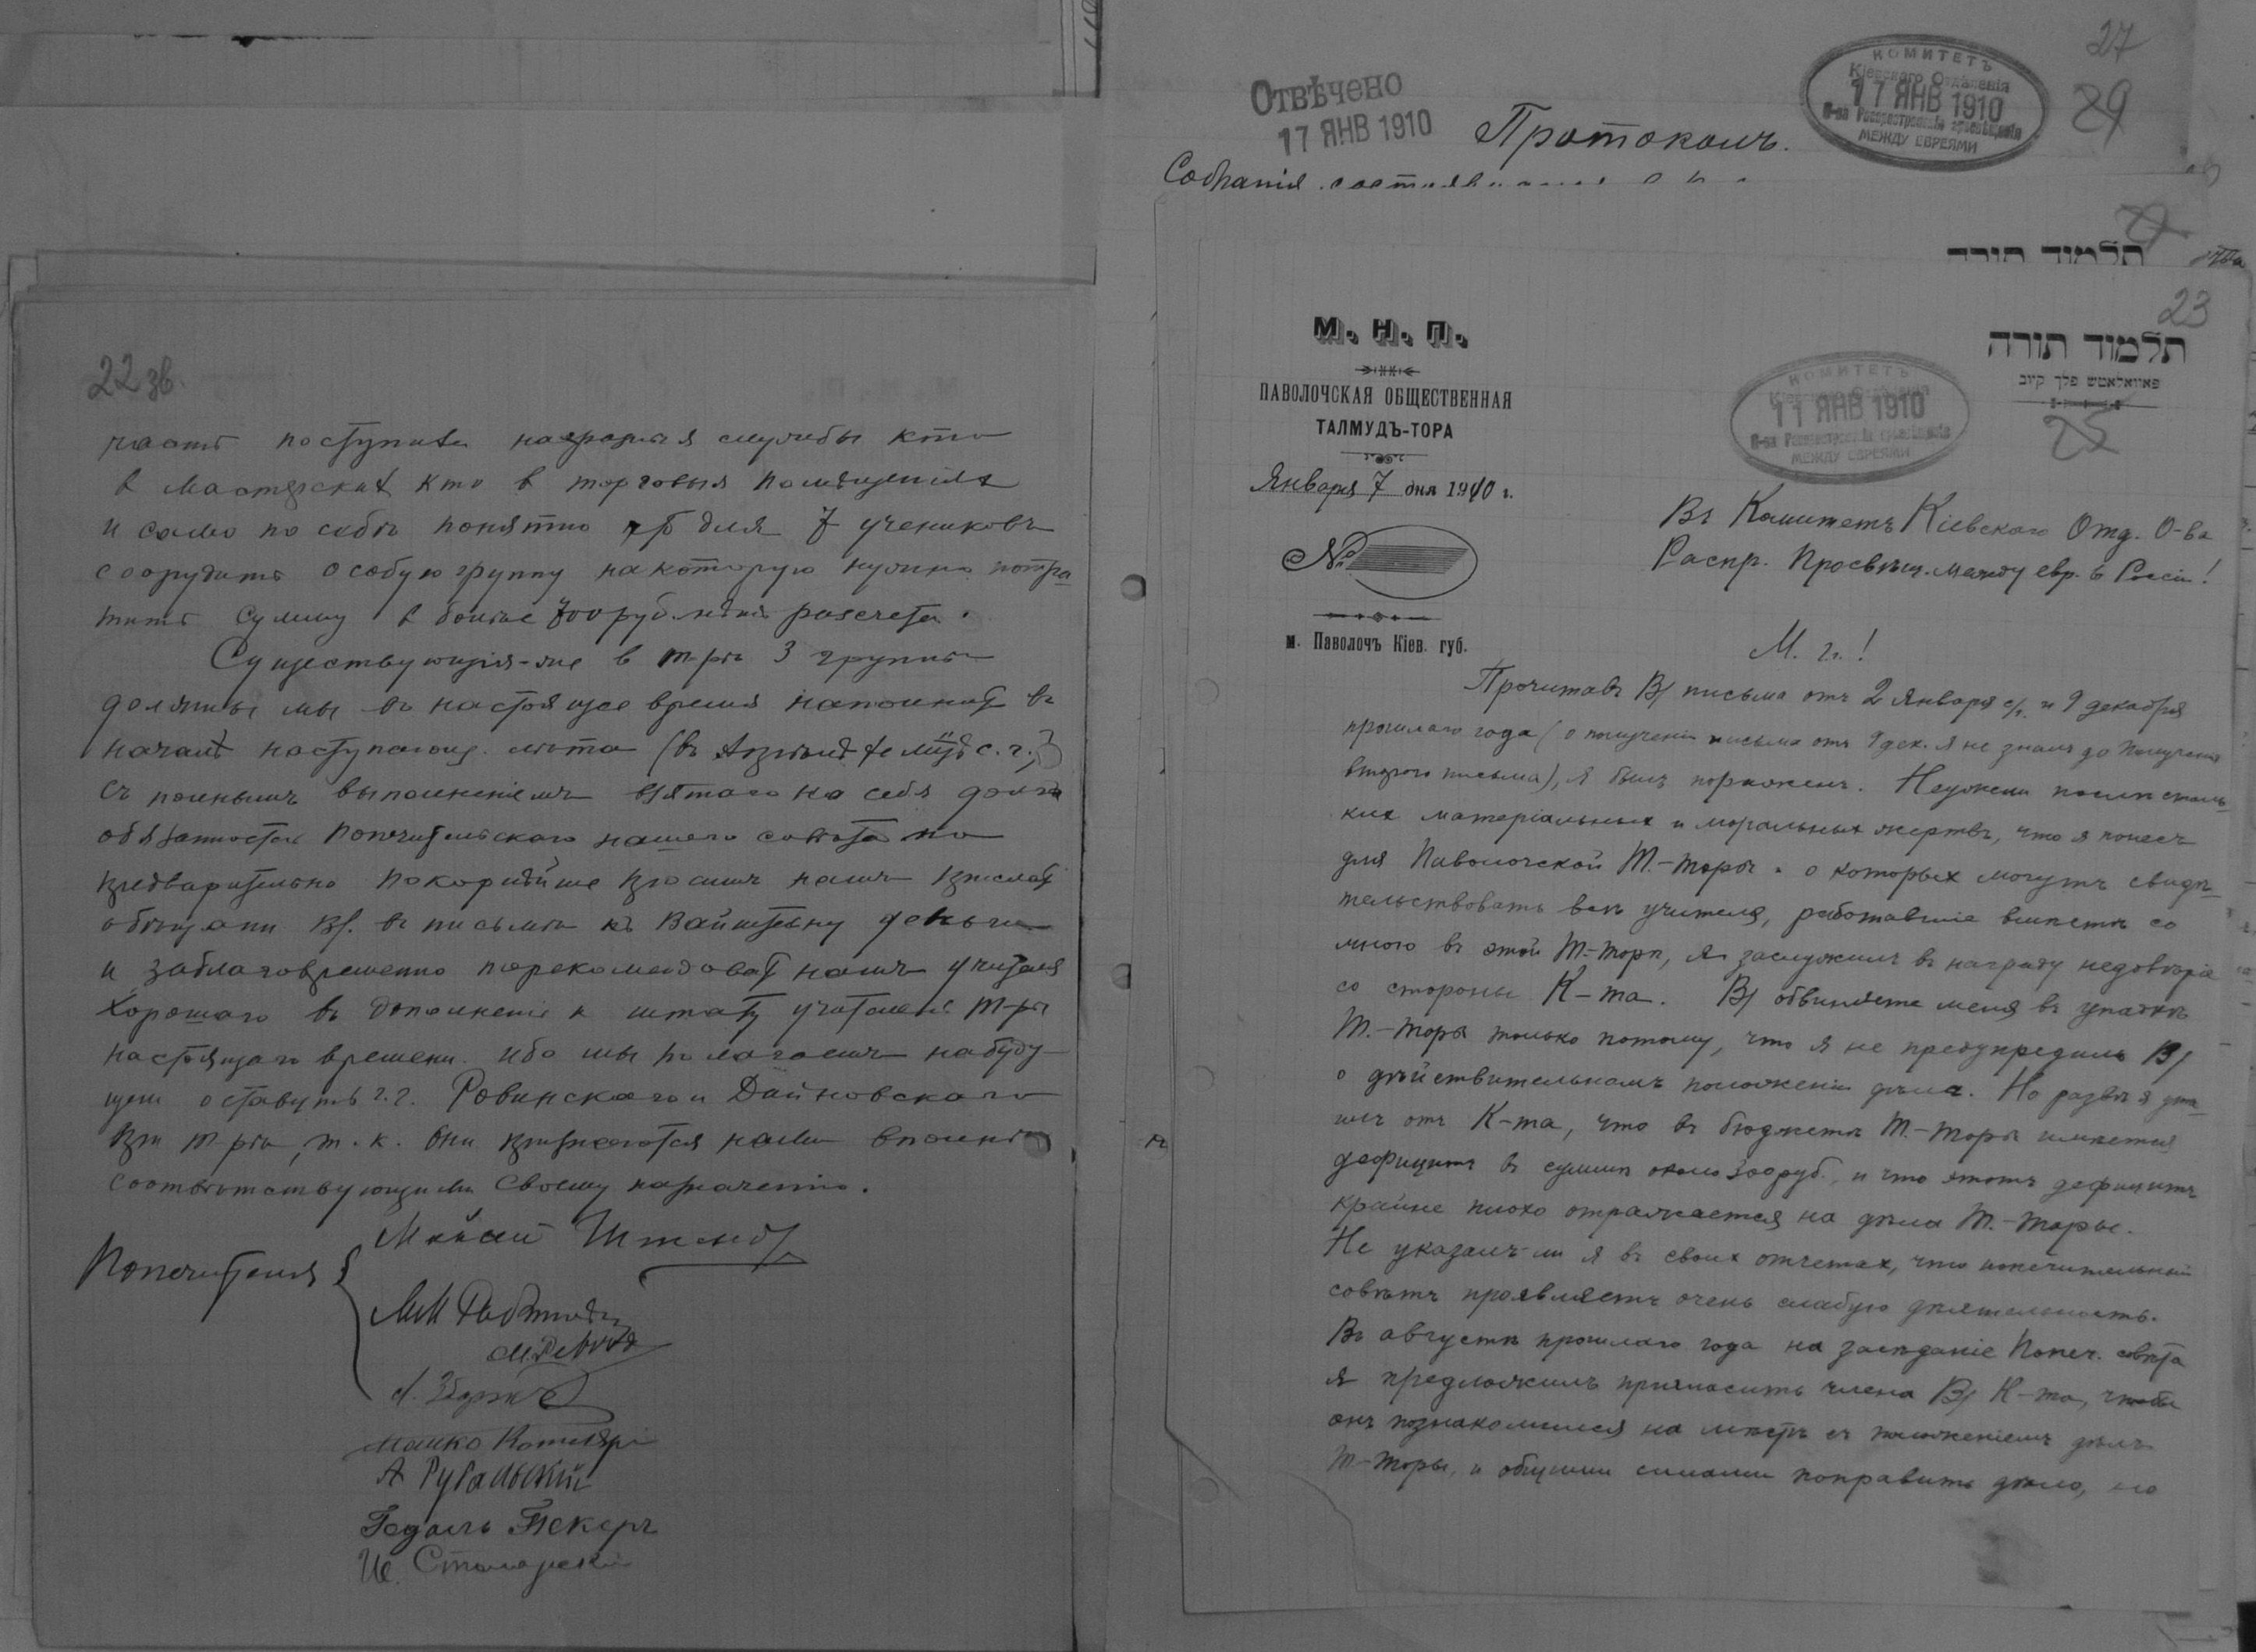 22 зв.
поступить на разныя службы кто
в мастерских кто в торговыя помещения
и само по себѣ понятно для 7 учеников
соорудить особую группу на которую нужно потра
тить сумму в более 700 руб. разсчета.
Существующія-же в т-рѣ 3 группы
должны мы въ настоящее время
начале наступающ. лѣта (въ с. г.)
съ полнымъ выполненіемъ взятаго на себя долга
обязанностей попечительскаго нашего совѣта но
предварительно покорнѣйше просимъ намъ прислать
обѣщан. В/. въ письмѣ къ Вайнштейну деньги
и заблаговременно порекомендовать намъ учителя
хорошаго въ дополненіе к штату учителей т-ры
настоящаго времени. ибо мы полагаемъ на буду
щем оставить г.г. Ровинскаго и Дайновскаго
при т-рѣ, т. к. они признаются нами вполнѣ
соотвѣтствующими своему назначенію.
Попечителя
А. Ругальский
Гедаль Пекеръ
Столярскій
Отвѣчено
17 ЯНВ 1910
Протоколъ.
КОМИТЕТЪ
Кіевскаго Отдѣленія
17 ЯНВ 1910
О-ва Распространенія просвѣщенія
МЕЖДУ ЕВРЕЯМИ
27
29
Собранія
תלמוד תורה
23
М. Н. П.
ПАВОЛОЧСКАЯ ОБЩЕСТВЕННАЯ
ТАЛМУДЪ-ТОРА
Января 7 дня 1910 г.
№
м. Паволочъ Кіев. губ.
תלמוד תורה
פאוואלאטש פלך קיוב
25
КОМИТЕТЪ
Кіевскаго Отдѣленія
11 ЯНВ 1910
О-ва Распространенія просвѣщенія
МЕЖДУ ЕВРЕЯМИ
Въ Комитетъ Кіевскаго Отд. О-ва
Распр. Просвѣщ. между евр. в Россіи!
М. г.!
Прочитавъ В/ письма отъ 2 Января с/г. и 9 декабря
прошлаго года (о полученіи письма отъ 9 дек. я не зналъ до полученія
второго письма), я былъ пораженъ. Неужели послѣ столь
ких матеріальных и моральных жертвъ, что я понесъ
для Паволочской Т.-торы и о которых могутъ свидѣ
тельствовать всѣ учителя, работавшіе вмѣстѣ со
мною въ этой Т.-торѣ, я заслужилъ въ награду недовѣріе
со стороны К-та. В/ обвиняете меня въ упадкѣ
Т.-торы только потому, что я не предупредилъ В/
о дѣйствительномъ положеніи дѣла. Но развѣ я ута
илъ отъ К-та, что въ бюджетѣ Т.-торы имѣется
дефицитъ в суммѣ около 300 руб., и что этотъ дефицитъ
крайне плохо отражается на дѣла Т.-торы.
Не указалъ-ли я въ своих отчетах, что попечительный
совѣтъ проявляетъ очень слабую дѣятельность.
Въ августѣ прошлаго года на засѣданіе Попеч. совѣта
я предложилъ пригласить члена В/ К-та, чтобы
онъ познакомился на мѣстѣ съ положеніемъ дѣлъ
Т-торы, и общими силами поправить дѣло, но